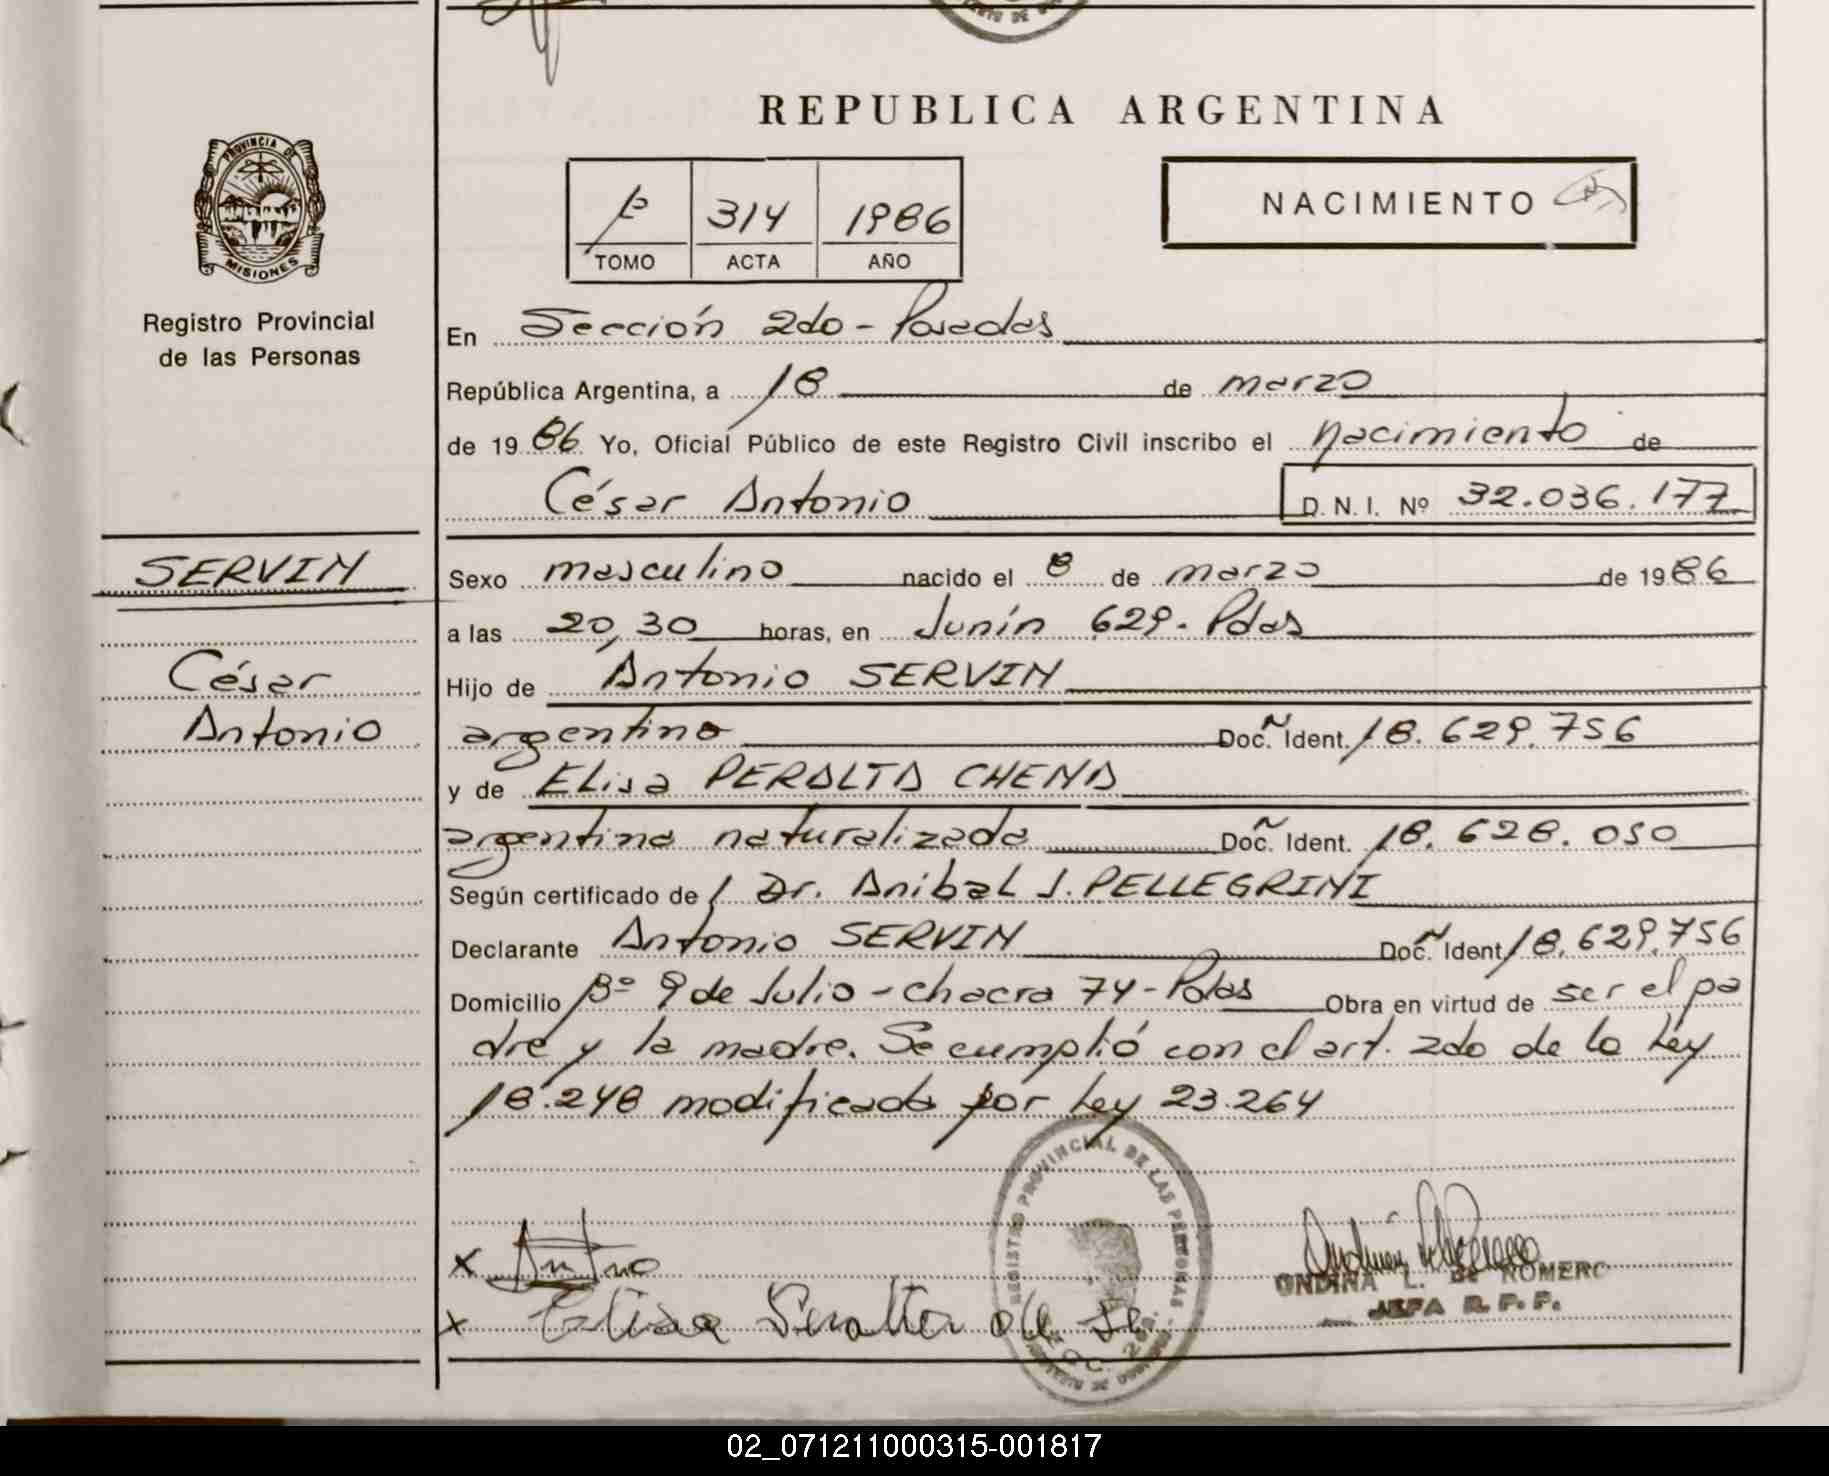 REPUBLICA ARGENTINA
PROVINCIA DE
MISIONES
Registro Provincial
de las Personas
314 1986
TOMO ACTA AÑO
NACIMIENTO
En Sección 2do - Posadas
República Argentina, a 18 de marzo
de 1986 Yo, Oficial Público de este Registro Civil inscribo el nacimiento de
César Antonio D. N. I. Nº 32.036.177
SERVIN
César
Antonio
Sexo masculino nacido el 8 de marzo de 1986
a las 20,30 horas, en Junín 629 - Pdas
Hijo de Antonio SERVIN
argentino Doc. Ident. 18.629.756
y de Elisa PERALTA CHENA
argentina naturalizada Doc. Ident. 18.628.050
Según certificado de Dr. Anibal J. PELLEGRINI
Declarante Antonio SERVIN Doc. Ident. 18.629.756
Domicilio Bº 9 de Julio - chacra 74 - Pdas Obra en virtud de ser el pa
dre y la madre. Se cumplió con el art. 2do de la Ley
18.248 modificada por Ley 23.264
REGISTRO PROVINCIAL DE LAS PERSONAS
Elisa Peralta de Se.
ONDINA L. de ROMERO
JEFA R. P. P.
02_071211000315-001817